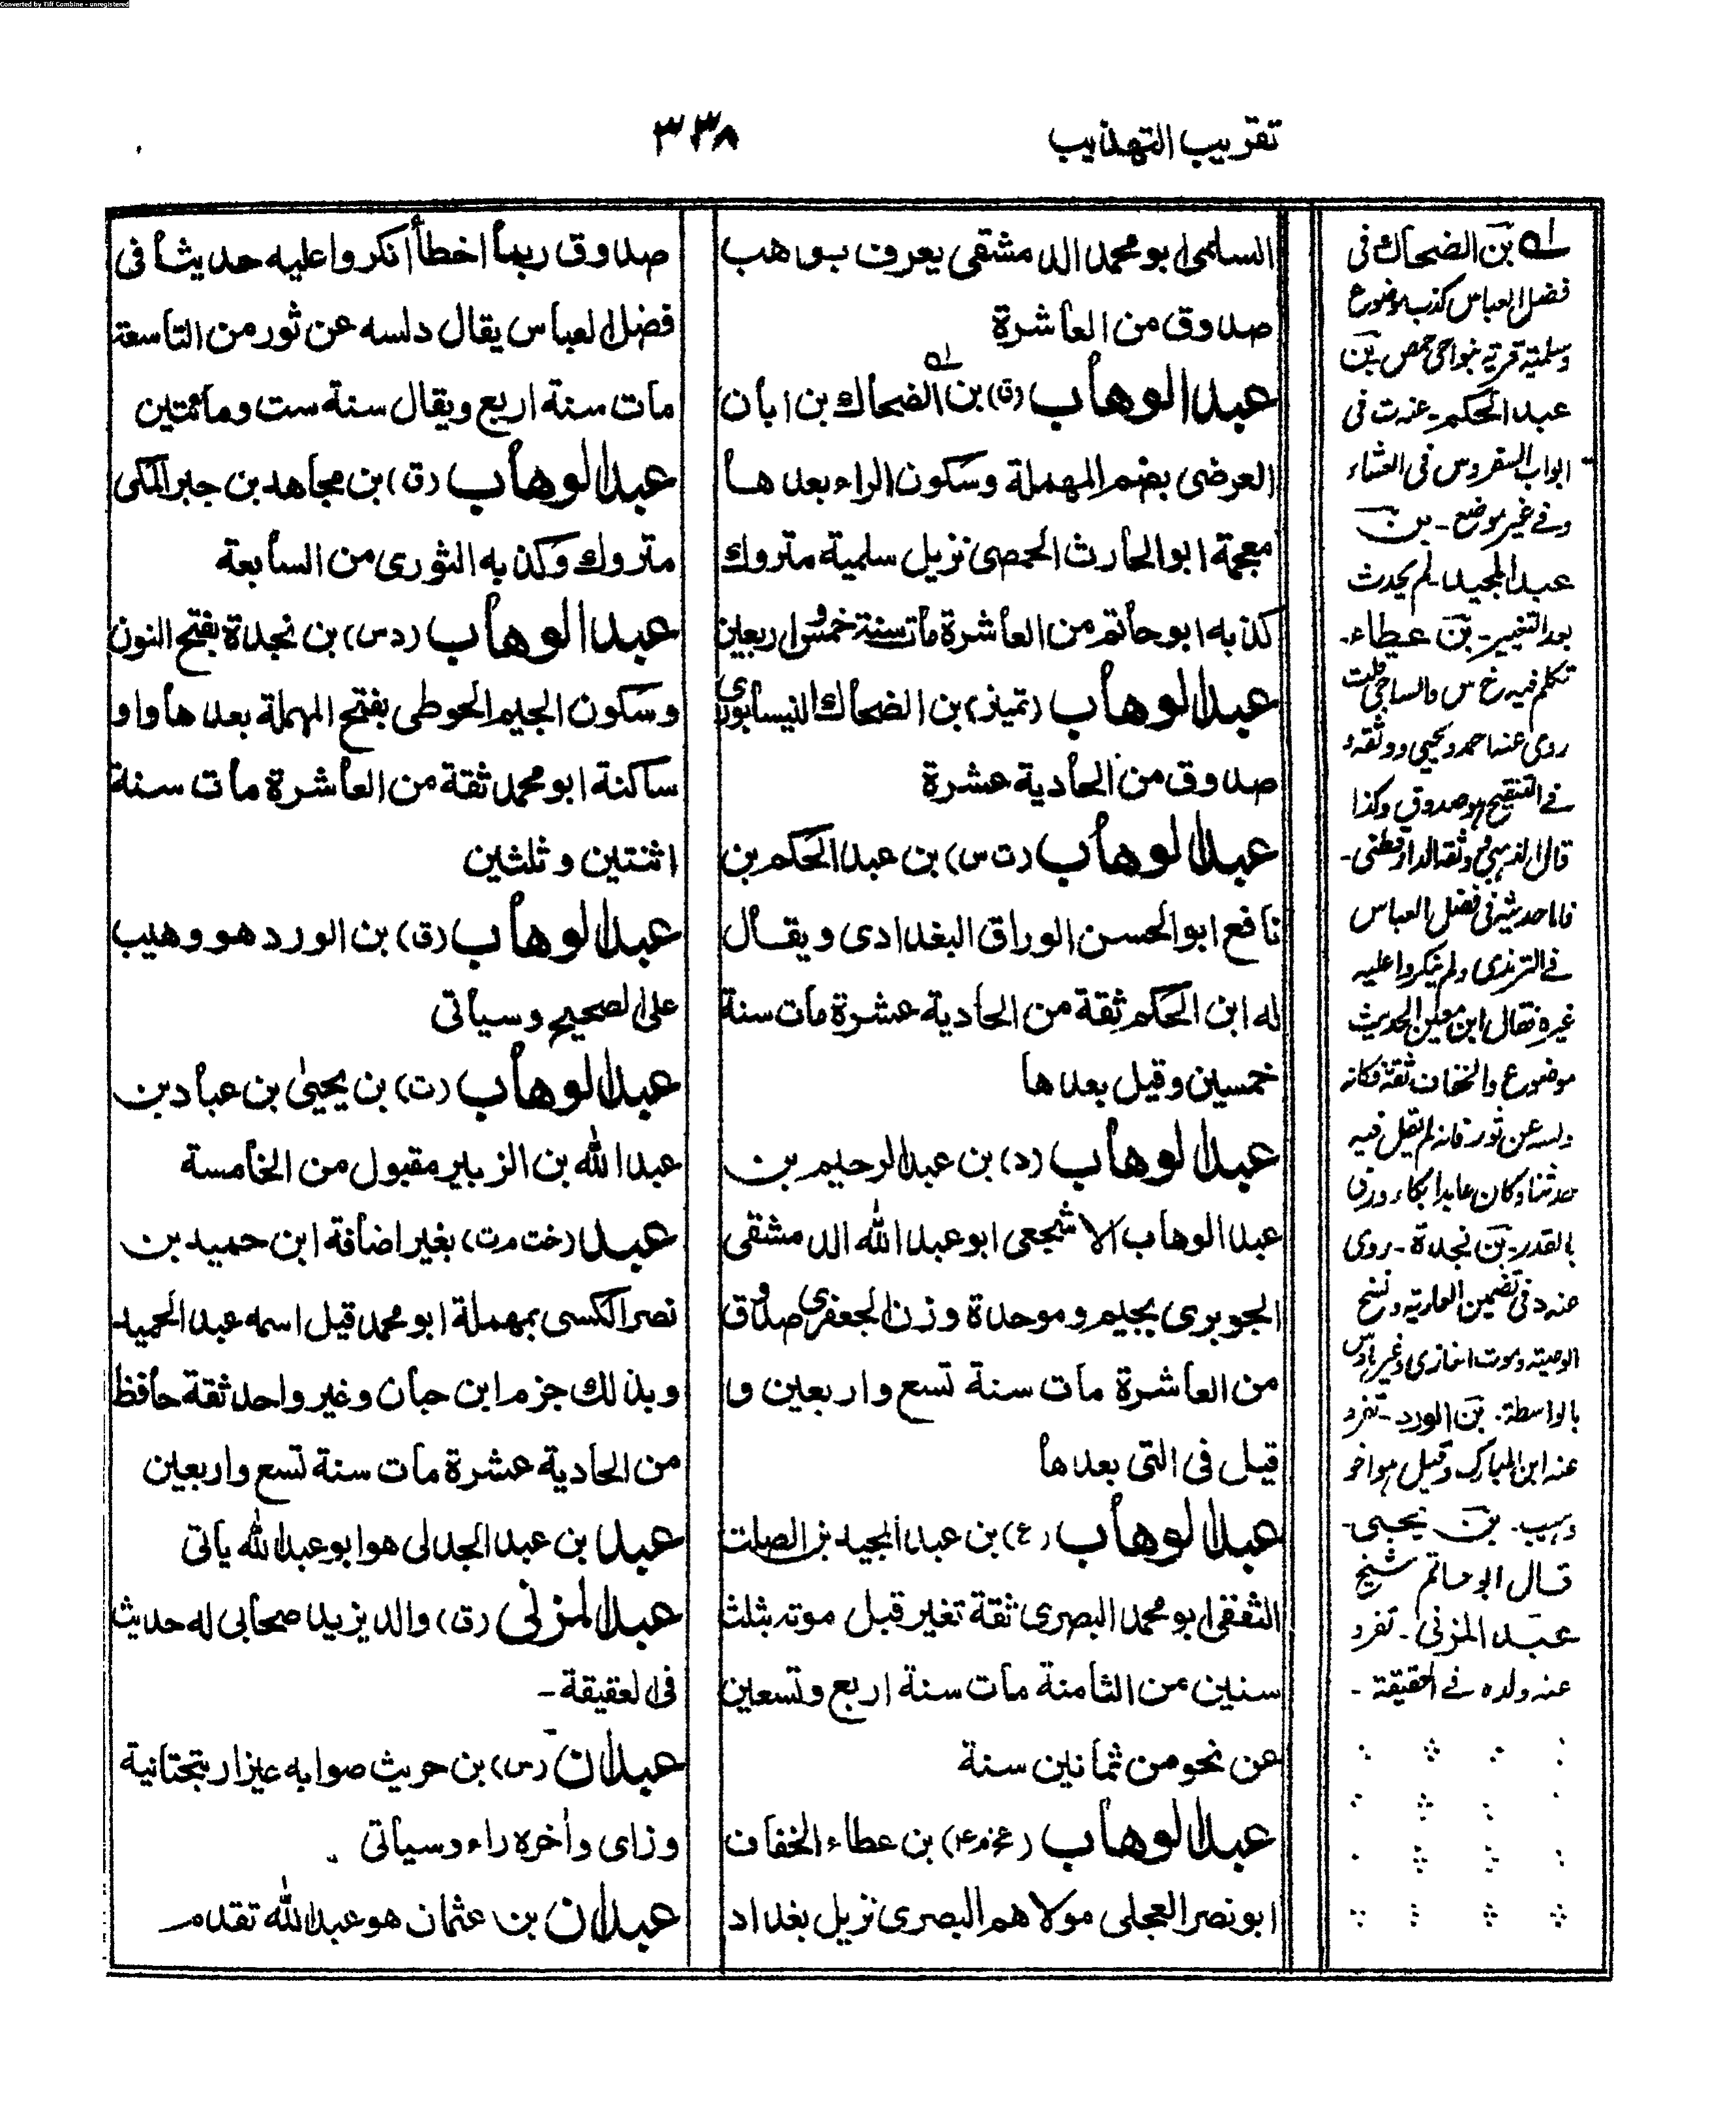 Converted by Tiff Combine - unregistered
تقريب التهذيب
٣٣٨
السلمي ابو محمد الدمشقي يعرف بوهب
صدوق من العاشرة
عبد الوهاب (ق) بن الضحاك بن ابان
العرضي بضم المهملة وسكون الراء بعدها
معجمة ابو الحارث الحمصي نزيل سلمية متروك
كذبه ابو حاتم من العاشرة مات سنة خمس واربعين
عبد الوهاب (تميز) بن الضحاك النيسابوري
صدوق من الحادية عشرة
عبد الوهاب (ت س) بن عبد الحكم بن
نافع ابو الحسن الوراق البغدادي ويقال
له ابن الحكم ثقة من الحادية عشرة مات سنة
خمسين وقيل بعدها
عبد الوهاب (د) بن عبد الرحيم بن
عبد الوهاب الاشجعي ابو عبد الله الدمشقي
الجوبري بجيم وموحدة وزن الجعفري صدوق
من العاشرة مات سنة تسع واربعين و
قيل في التي بعدها
عبد الوهاب (ع) بن عبد المجيد بن الصلت
الثقفي ابو محمد البصري ثقة تغير قبل موته بثلث
سنين من الثامنة مات سنة اربع وتسعين
عن نحو من ثمانين سنة
عبد الوهاب (عخ م ٤) بن عطاء الخفاف
ابو نصر العجلي مولاهم البصري نزيل بغداد
صدوق ربما اخطأ انكروا عليه حديثا في
فضل العباس يقال دلسه عن ثور من التاسعة
مات سنة اربع ويقال سنة ست ومائتين
عبد الوهاب (ق) بن مجاهد بن جبر المكي
متروك وكذبه الثوري من السابعة
عبد الوهاب (د س) بن نجدة بفتح النون
وسكون الجيم الحوطي بفتح المهملة بعدها واو
ساكنة ابو محمد ثقة من العاشرة مات سنة
اثنتين وثلثين
عبد الوهاب (ق) بن الورد هو وهيب
على الصحيح وسياتي
عبد الوهاب (ت) بن يحيى بن عباد بن
عبد الله بن الزبير مقبول من الخامسة
عبد (خت م ت) بغير اضافة ابن حميد بن
نصر الكسي بمهملة ابو محمد قيل اسمه عبد الحميد
وبذلك جزم ابن حبان وغير واحد ثقة حافظ
من الحادية عشرة مات سنة تسع واربعين
عبد بن عبد الجدلي هو ابو عبد الله ياتي
عبد المزني (ق) والد يزيد صحابي له حديث
في العقيقة -
عبدان (س) بن حريث صوابه عيزار بتحتانية
وزاي وأخره راء وسياتي
عبدان بن عثمان هو عبد الله تقدم
له بن الضحاك في
فضل العباس كذب موضوع
وسلمية قرية بنواحي حمص بن
عبد الحكم - عنه ت في
ابواب السفر و س في العشاء
وفي غير موضع - بن
عبد المجيد لم يحدث
بعد التغيير - بن عطاء -
تكلم فيه خ س والساجي قلت
روى عنه احمد ويحيى ووثقه و
في التنقيح هو صدوق وكذا
قال الذهبي وثقه الدارقطني -
فاما حديثه في فضل العباس
في الترمذي ولم ينكروا عليه
غيره فقال ابن معين الحديث
موضوع والخفاف ثقة فكانه
دلسه عن ثور فانه لم يقل فيه
حدثنا وكان عابدا بكاء ورمي
بالقدر - بن نجدة - روى
عنه د في تضمين العارية ونسخ
الوصية وموت الغازي وغيرها و س
بالواسطة - بن الورد - تفرد
عنه ابن المبارك وقيل هو اخو
وهيب - بن يحيى -
قال ابو حاتم شيخ
عبد المزني - تفرد
عنه ولده في العقيقة -